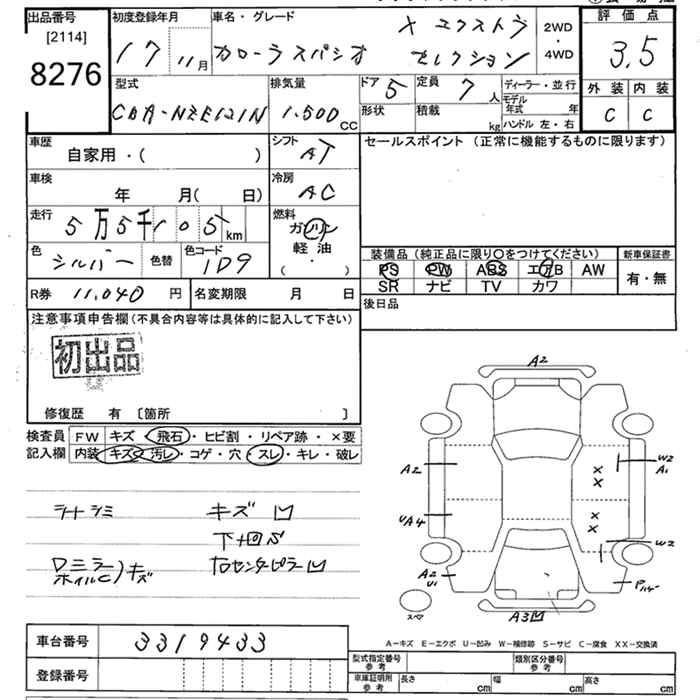 出品番号
[2114]
8276
初度登録年月
車名・グレード
17 11月
カローラスパシオ
X エクストラ
セレクション
2WD・4WD
評価点
3.5
外装 内装
C C
型式
CBA-NZE121N
排気量
1.500 CC
ドア 5
形状
定員 7 人
積載 kg
ディーラー・並行
モデル年式 年
ハンドル 左・右
車歴
自家用・( )
シフト
AT
セールスポイント (正常に機能するものに限ります)
車検
年 月( 日)
冷房
AC
走行
5万5千105 km
燃料
ガソリン
軽油
・
( )
色
シルバー
色替
色コード
1D9
装備品 (純正品に限り○をつけてください)
新車保証書
PS PW ABS エアB AW
有・無
SR ナビ TV カワ
R券 11.040 円
名変期限 月 日
後日品
注意事項申告欄(不具合内容等は具体的に記入して下さい)
初出品
修復歴 有 [箇所 ]
検査員
記入欄
FW キズ・飛石・ヒビ割・リペア跡・×要
内装 キズ・汚レ・コゲ・穴・スレ・キレ・破レ
シートシミ
キズ凹
下廻サビ
Dミラー
ホイルC)キズ
右センターピラー凹
A2
A2
W2
A1
UA4
X
X
X
X
W2
A2
U1
スペア
A3凹
A-キズ E-エクボ U-凹み W-補修跡 S-サビ C-腐食 XX-交換済
車台番号
3319433
登録番号
型式指定番号
参考
類別区分番号
参考
車庫証明用
参考
長さ cm
幅 cm
高さ cm